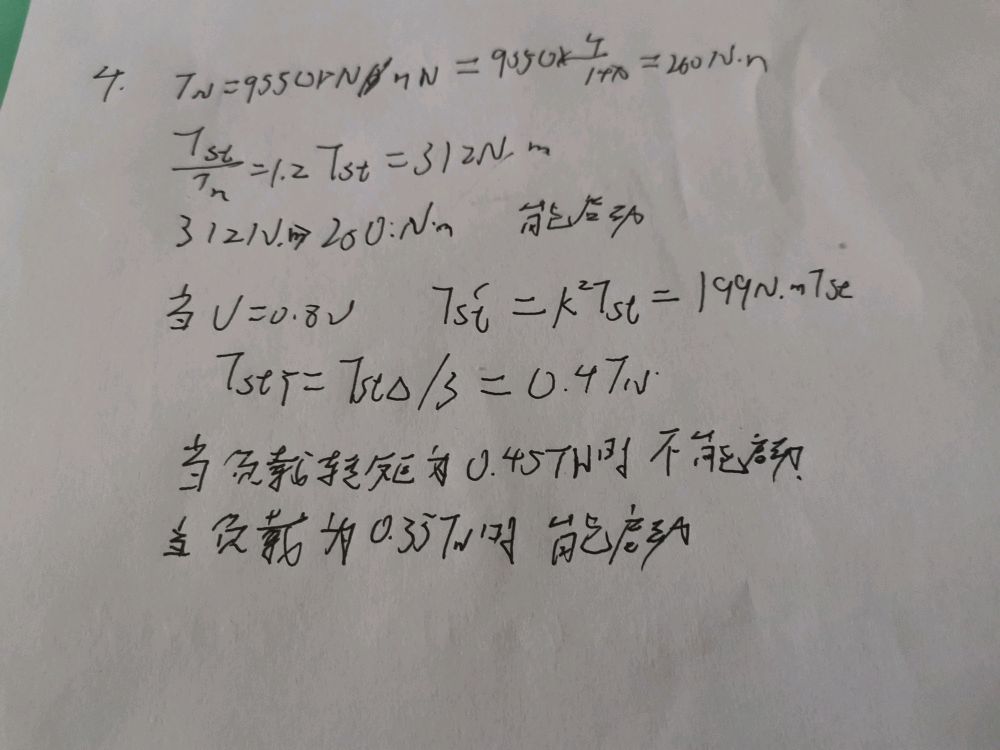 4. T_N=9550PN/nN=9550×4/1470=260N·m
Tst/Tn=1.2 Tst=312N·m
312N·m>260N·m 能启动
当U=0.8U Tst′=K²Tst=199N·mTst
TstY=TstΔ/3=0.4TN
当负载转矩为0.45TN时 不能启动
当负载为0.35TN时 能启动